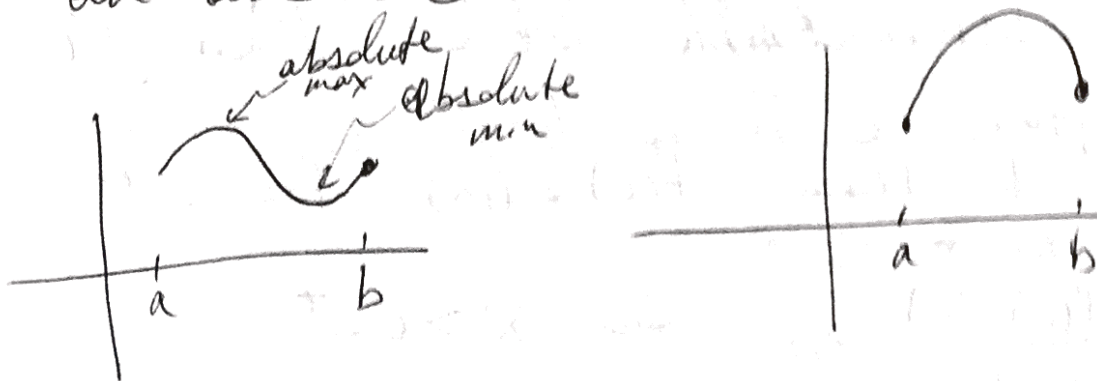 absolute
max
absolute
min
a
b
a
b